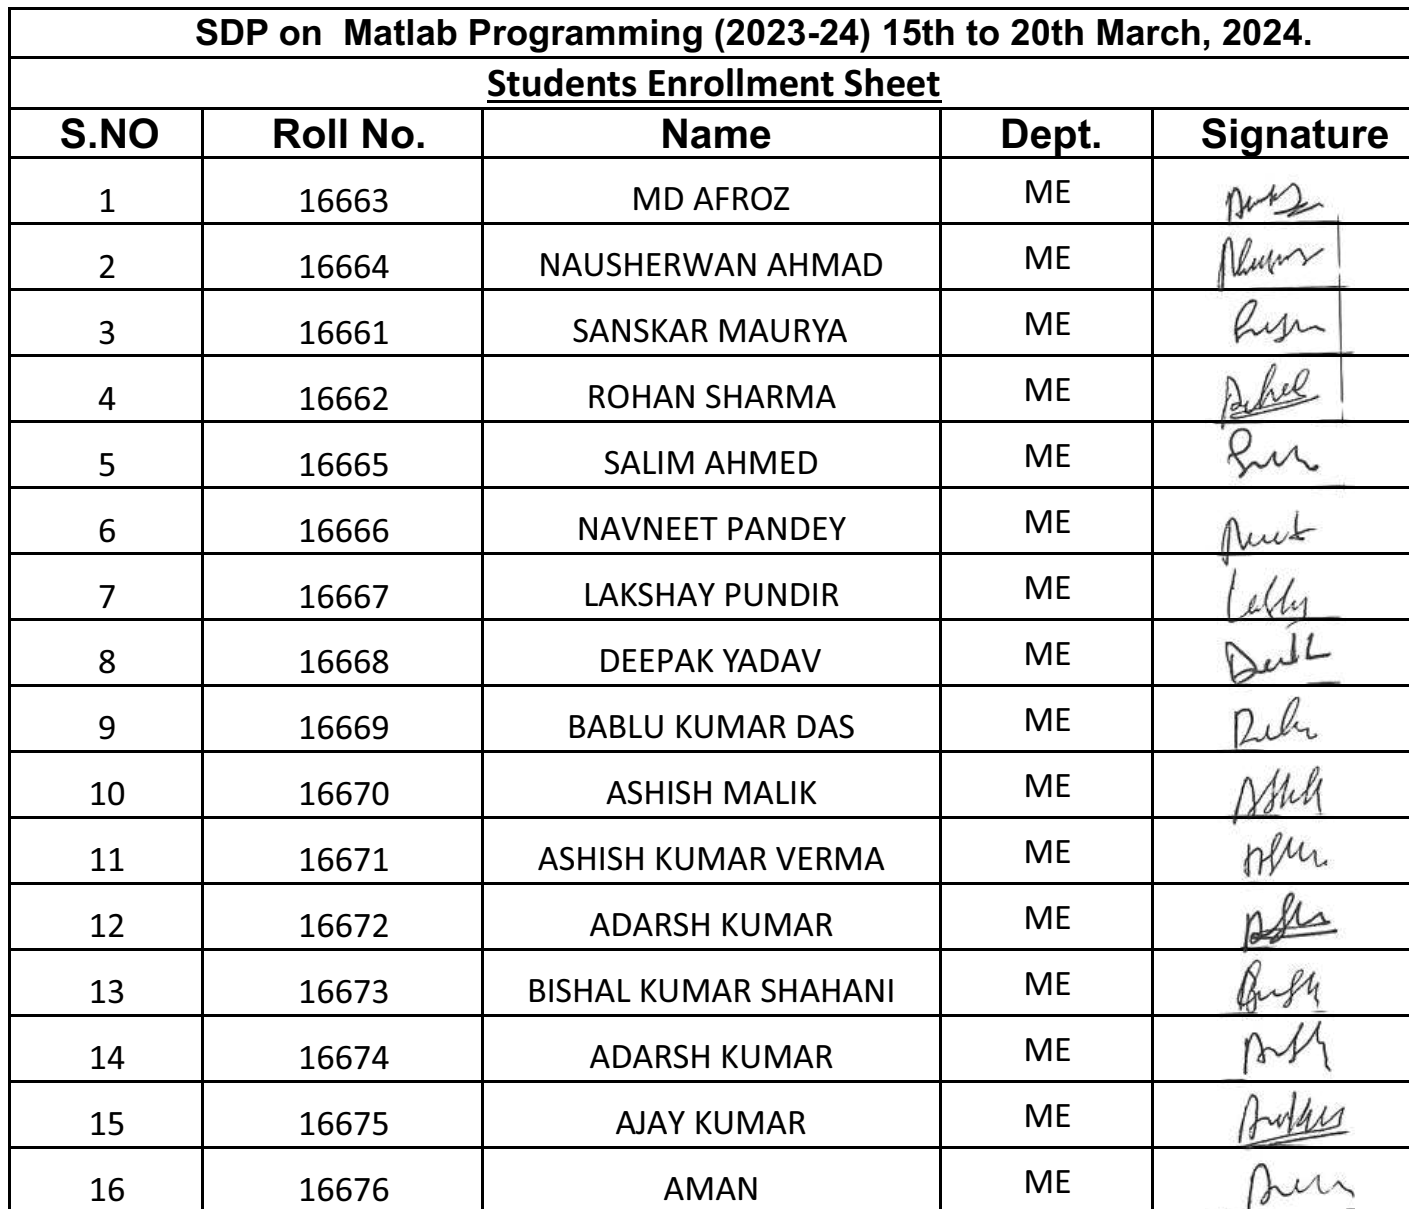 SDP on Matlab Programming (2023-24) 15th to 20th March, 2024.
Students Enrollment Sheet
S.NO Roll No. Name Dept. Signature
1 16663 MD AFROZ ME
2 16664 NAUSHERWAN AHMAD ME
3 16661 SANSKAR MAURYA ME
4 16662 ROHAN SHARMA ME
5 16665 SALIM AHMED ME
6 16666 NAVNEET PANDEY ME
7 16667 LAKSHAY PUNDIR ME
8 16668 DEEPAK YADAV ME
9 16669 BABLU KUMAR DAS ME
10 16670 ASHISH MALIK ME
11 16671 ASHISH KUMAR VERMA ME
12 16672 ADARSH KUMAR ME
13 16673 BISHAL KUMAR SHAHANI ME
14 16674 ADARSH KUMAR ME
15 16675 AJAY KUMAR ME
16 16676 AMAN ME